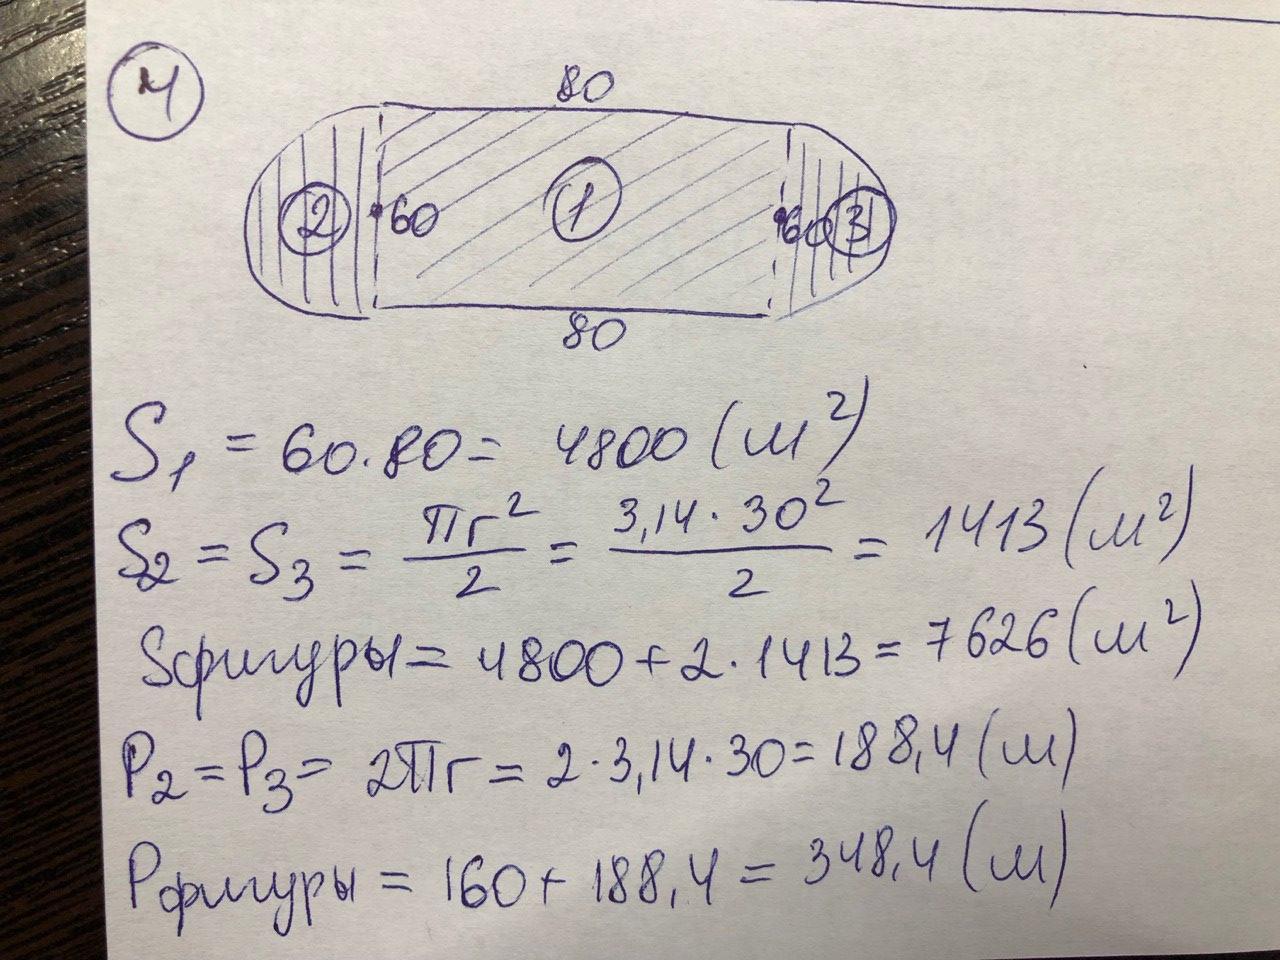 4
80
2 60 1 60 3
80
S₁ = 60·80 = 4800 (м²)
S₂ = S₃ = πr²/2 = 3,14·30²/2 = 1413 (м²)
Sфигуры = 4800 + 2·1413 = 7626 (м²)
P₂ = P₃ = 2πr = 2·3,14·30 = 188,4 (м)
Pфигуры = 160 + 188,4 = 348,4 (м)